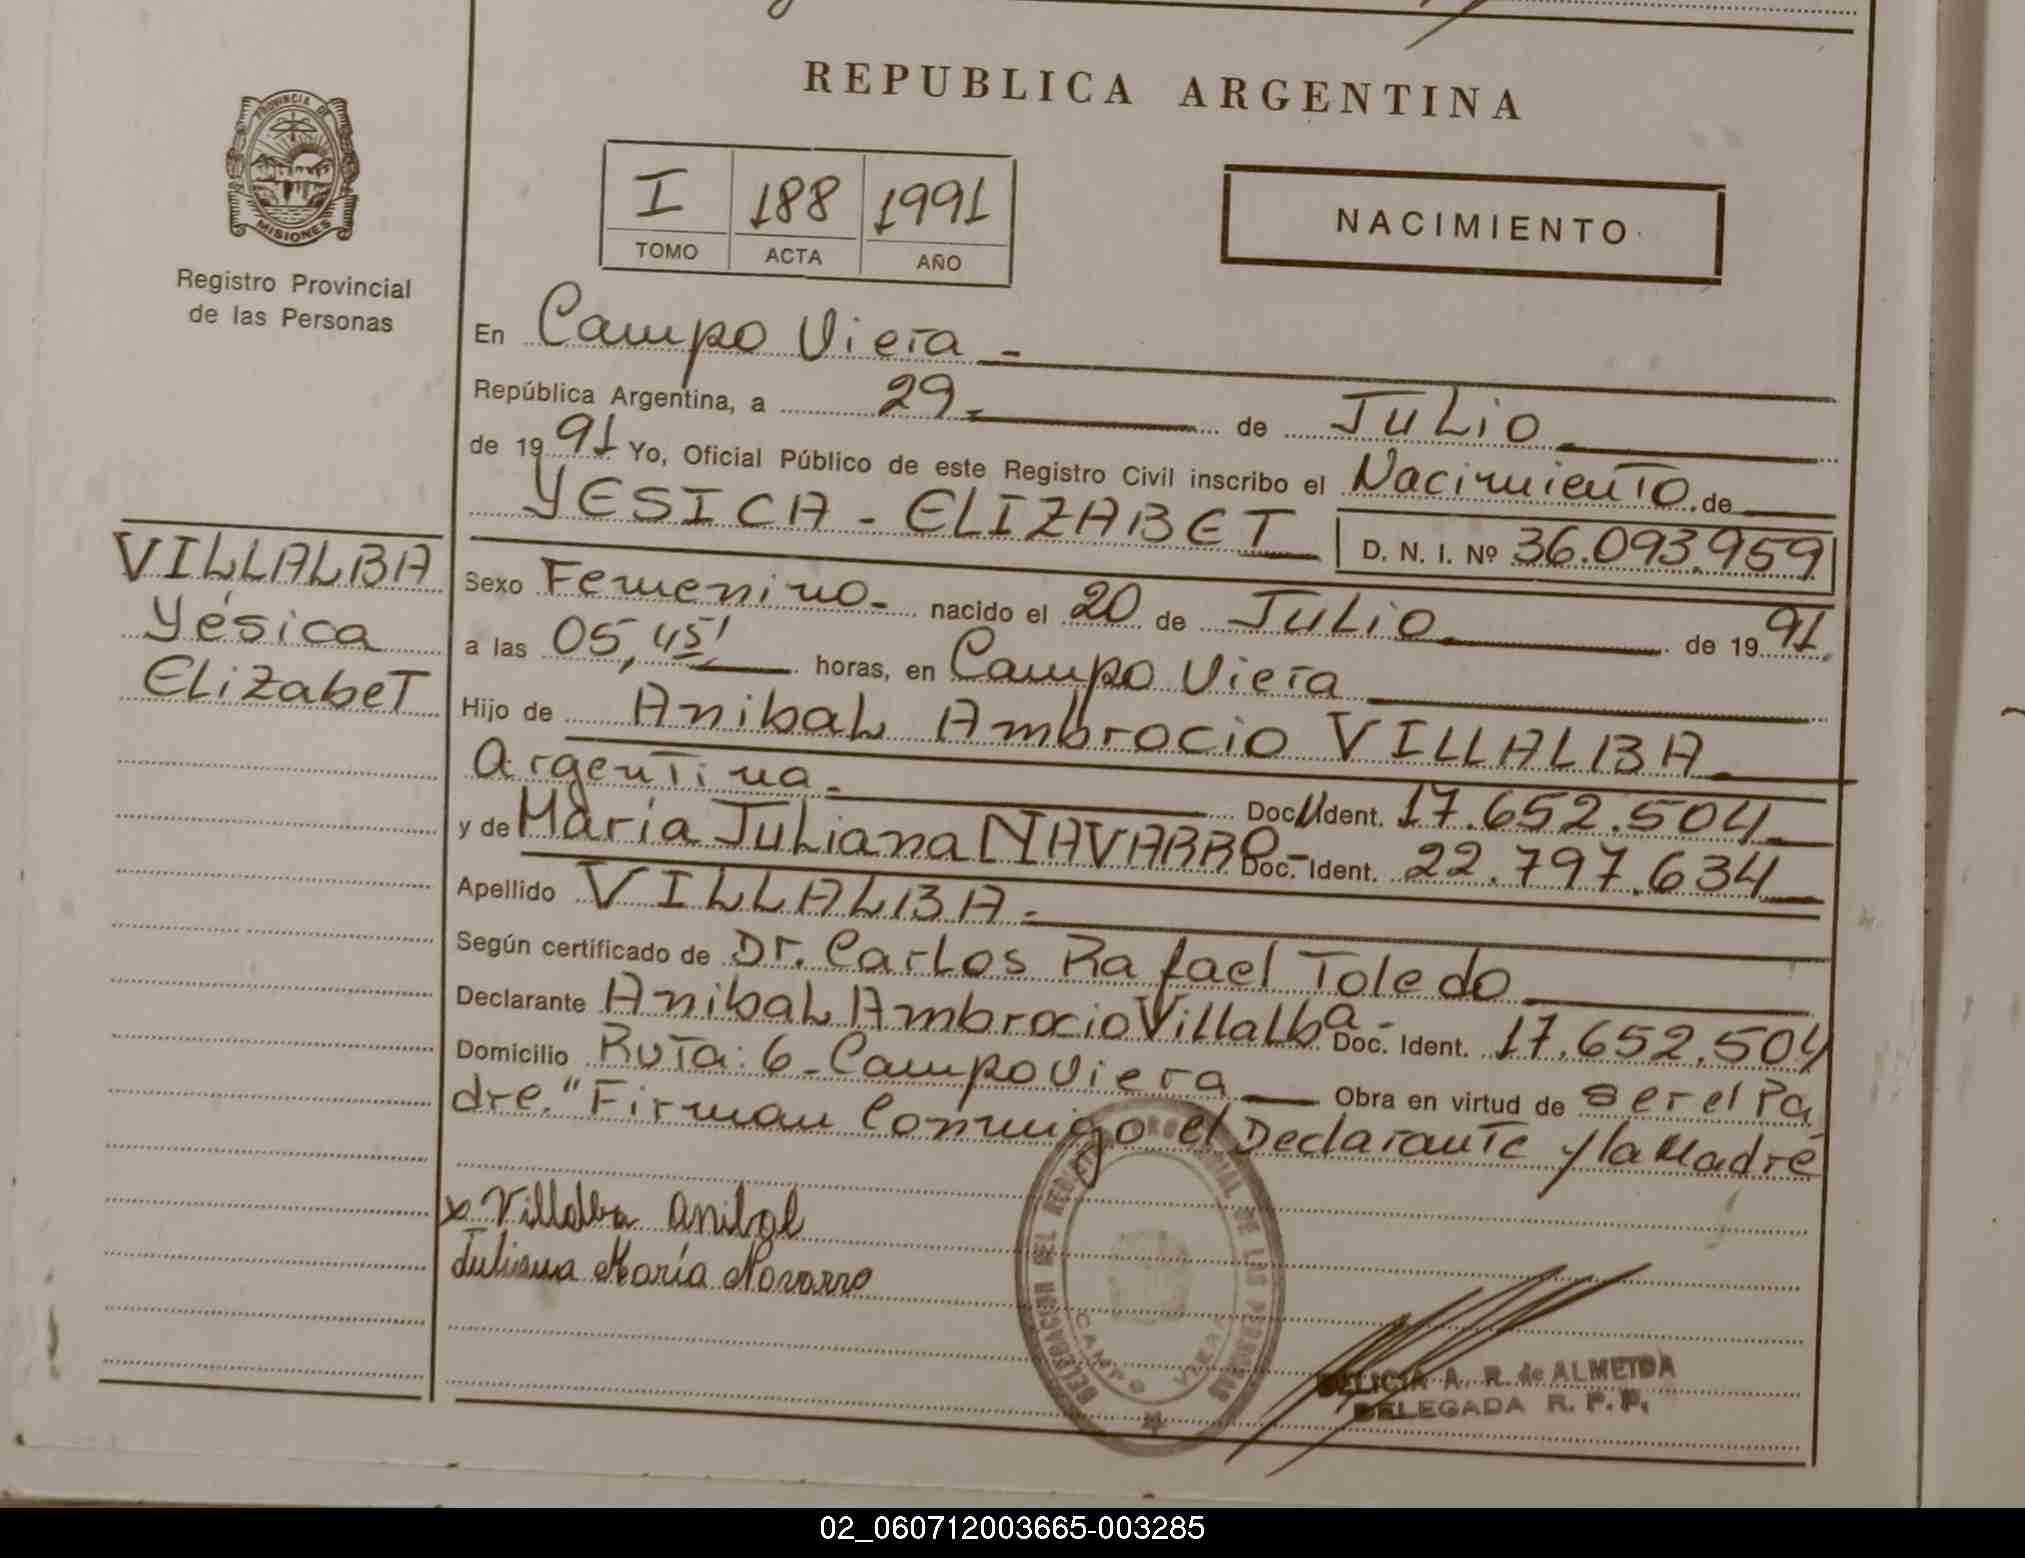 REPUBLICA ARGENTINA
PROVINCIA DE
MISIONES
Registro Provincial
de las Personas
I 188 1991
TOMO ACTA AÑO
NACIMIENTO
En Campo Viera -
República Argentina, a 29 - de Julio
de 1991 Yo, Oficial Público de este Registro Civil inscribo el Nacimiento de
YESICA - ELIZABET D. N. I. Nº 36.093.959
VILLALBA
Yésica
Elizabet
Sexo Femenino - nacido el 20 de Julio de 1991.
a las 05,45' horas, en Campo Viera
Hijo de Anibal Ambrocio VILLALBA
Argentina - Doc. Ident. 17.652.504
y de María Juliana NAVARRO - Doc. Ident. 22.797.634
Apellido VILLALBA -
Según certificado de Dr. Carlos Rafael Toledo
Declarante Anibal Ambrocio Villalba - Doc. Ident. 17.652.504
Domicilio Ruta: 6 - Campo Viera Obra en virtud de ser el Pa
dre. "Firman Conmigo el Declarante y la Madre
x Villalba Anibal
Juliana María Navarro
DELEGACION DEL REGISTRO PROVINCIAL DE LAS PERSONAS
CAMPO VIERA
DELICIA A. R. de ALMEIDA
DELEGADA R. P. P.
02_060712003665-003285